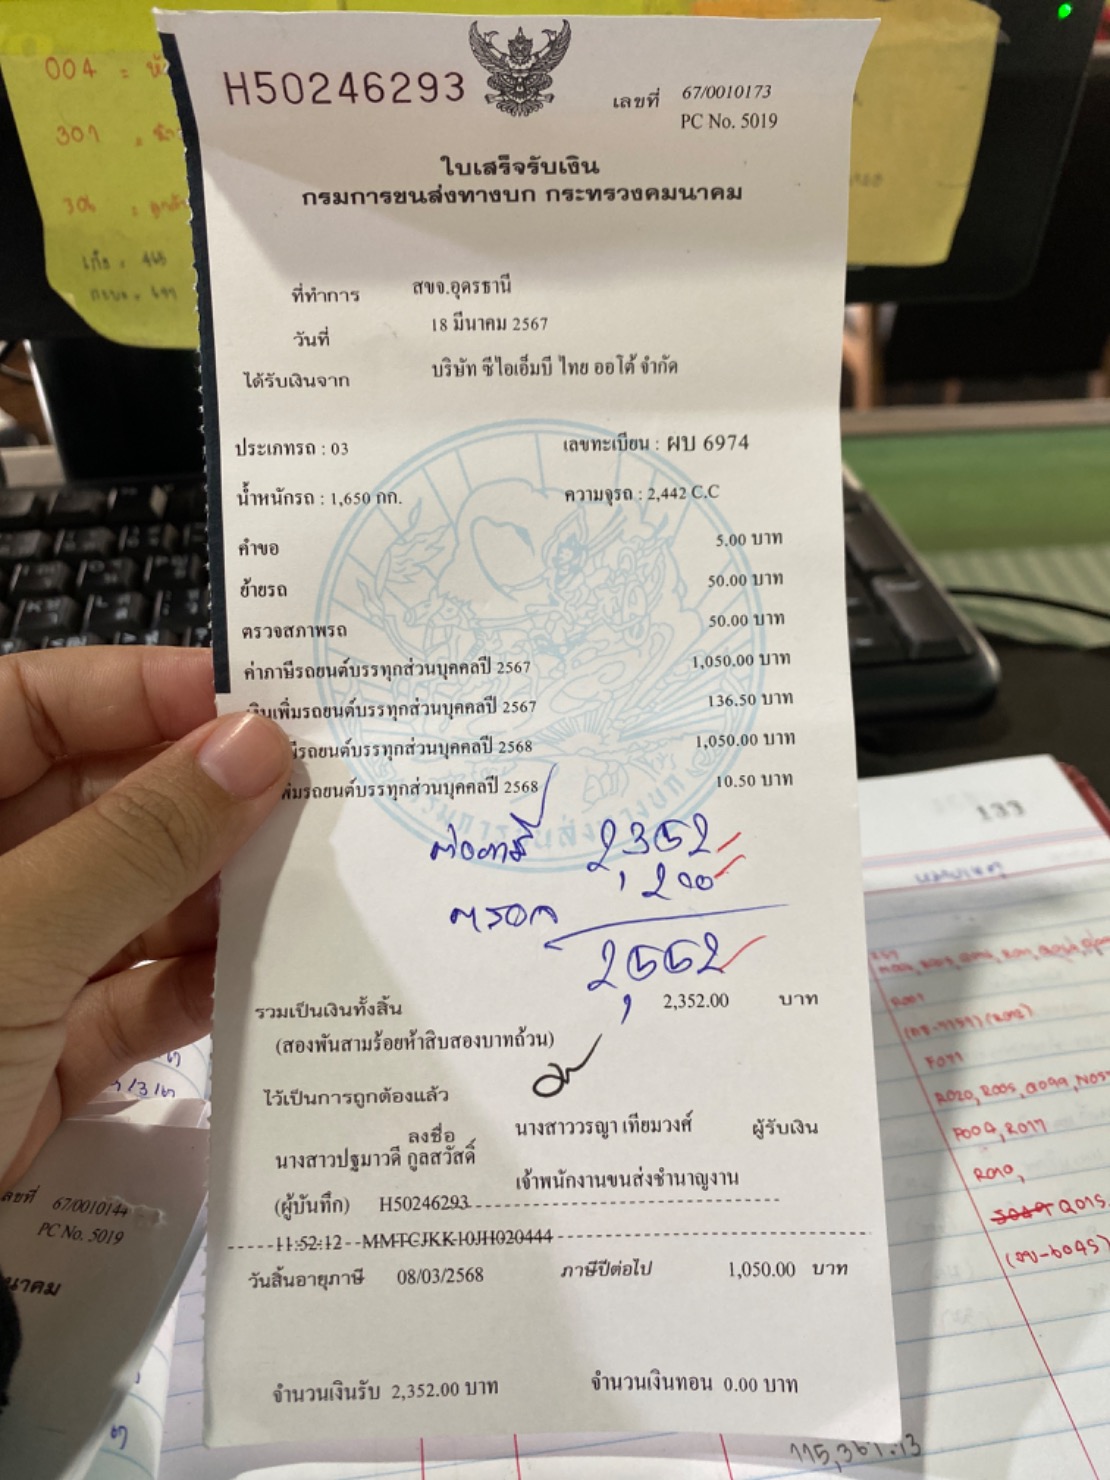 H50246293
เลขที่ 67/0010173
PC No. 5019
ใบเสร็จรับเงิน
กรมการขนส่งทางบก กระทรวงคมนาคม
ที่ทำการ สขจ.อุดรธานี
วันที่ 18 มีนาคม 2567
ได้รับเงินจาก บริษัท ซีไอเอ็มบี ไทย ออโต้ จำกัด
ประเภทรถ : 03 เลขทะเบียน : ผบ 6974
น้ำหนักรถ : 1,650 กก. ความจุรถ : 2,442 C.C
คำขอ 5.00 บาท
ย้ายรถ 50.00 บาท
ตรวจสภาพรถ 50.00 บาท
ค่าภาษีรถยนต์บรรทุกส่วนบุคคลปี 2567 1,050.00 บาท
เงินเพิ่มรถยนต์บรรทุกส่วนบุคคลปี 2567 136.50 บาท
รถยนต์บรรทุกส่วนบุคคลปี 2568 1,050.00 บาท
รถยนต์บรรทุกส่วนบุคคลปี 2568 10.50 บาท
กรมการขนส่งทางบก
ต่อภาษี 2,352
ตรอ 200
2,552
รวมเป็นเงินทั้งสิ้น 2,352.00 บาท
(สองพันสามร้อยห้าสิบสองบาทถ้วน)
ไว้เป็นการถูกต้องแล้ว
ลงชื่อ นางสาววรญา เทียมวงศ์ ผู้รับเงิน
นางสาวปฐมาวดี กูลสวัสดิ์
เจ้าพนักงานขนส่งชำนาญงาน
(ผู้บันทึก) H50246293
11:52:12 MMTCJKK10JH020444
วันสิ้นอายุภาษี 08/03/2568 ภาษีปีต่อไป 1,050.00 บาท
จำนวนเงินรับ 2,352.00 บาท จำนวนเงินทอน 0.00 บาท
004 =
301
306
465
เลขที่ 67/0010144
PC No. 5019
นาคม
133
หมายเหตุ
R001
F011
R020, R005, Q099, N05
F004, R017
R010,
Q015
(ขบ-6045)
115,361.13